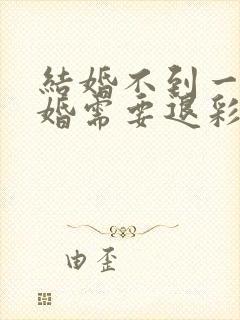 結婚不到一
婚需要退彩
由歪